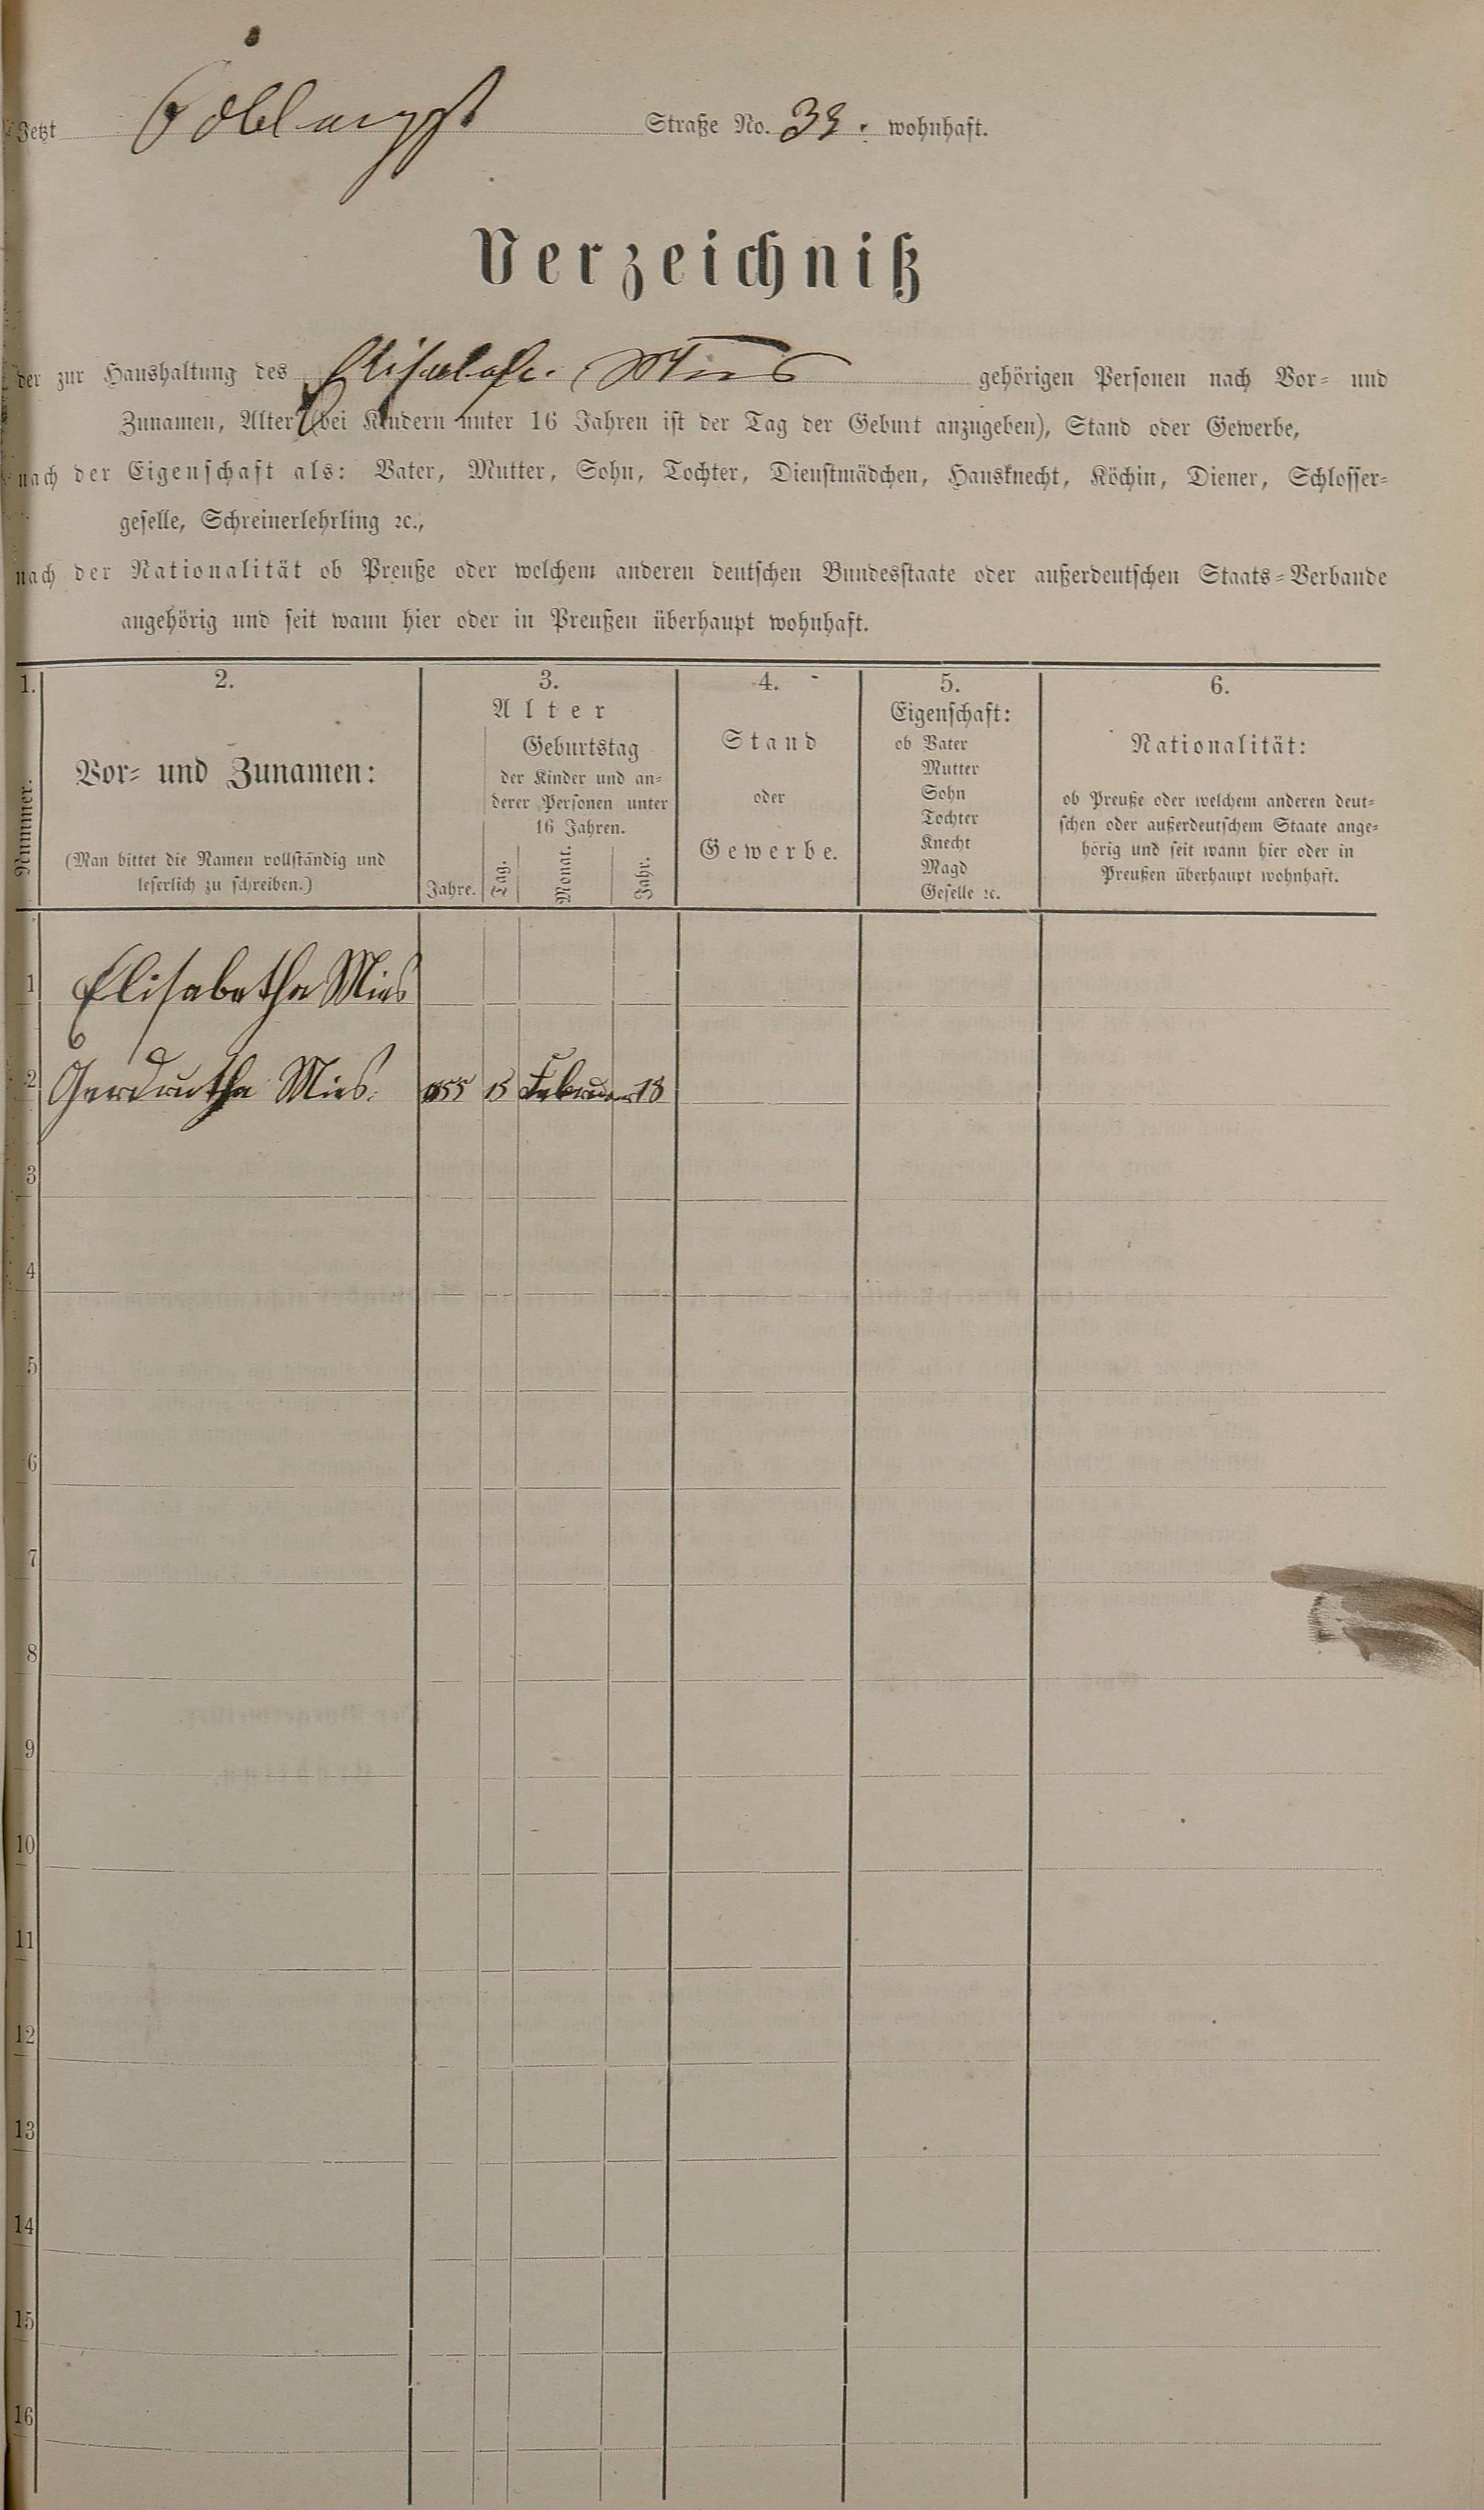 Jetzt Straße No. 39. wohnhaft.
Verzeichniß
der zur Haushaltung des Elisabetha Mies gehörigen Personen nach Vor- und
Zunamen, Alter (bei Kindern unter 16 Jahren ist der Tag der Geburt anzugeben), Stand oder Gewerbe,
nach der Eigenschaft als: Vater, Mutter, Sohn, Tochter, Dienstmädchen, Hausknecht, Köchin, Diener, Schlosser-
geselle, Schreinerlehrling ꝛc.,
nach der Nationalität ob Preuße oder welchem anderen deutschen Bundesstaate oder außerdeutschen Staats-Verbande
angehörig und seit wann hier oder in Preußen überhaupt wohnhaft.
1. 2. 3. 4. 5. 6.
Nummer.
Vor- und Zunamen:
(Man bittet die Namen vollständig und
leserlich zu schreiben.)
Alter
Geburtstag
der Kinder und an-
derer Personen unter
16 Jahren.
Jahre. Tag. Monat. Jahr.
Stand
oder
Gewerbe.
Eigenschaft:
ob Vater
Mutter
Sohn
Tochter
Knecht
Magd
Geselle ꝛc.
Nationalität:
ob Preuße oder welchem anderen deut-
schen oder außerdeutschem Staate ange-
hörig und seit wann hier oder in
Preußen überhaupt wohnhaft.
1 Elisabetha Mies
2 Gerdrutha Mies. 15 Februar 18
3
4
5
6
7
8
9
10
11
12
13
14
15
16